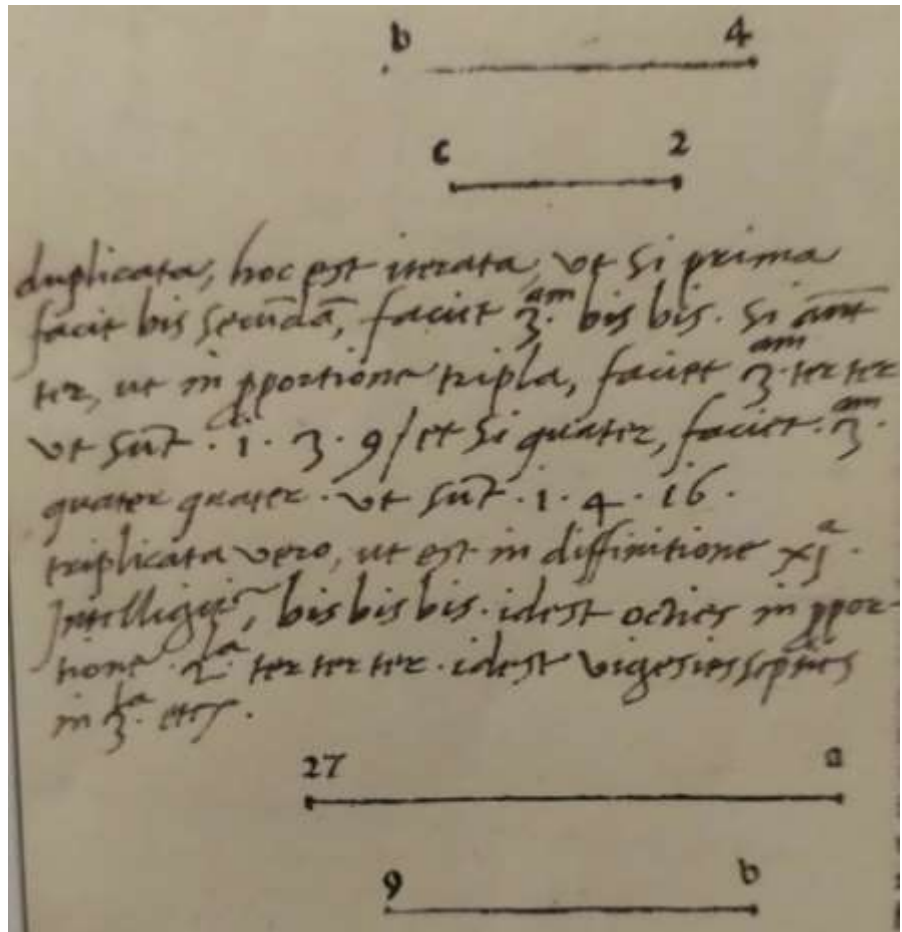 b 4
c 2
duplicata, hoc est iterata, ut si prima
facit bis secūdā, faciet 3.am bis bis. si aūt
ter, ut in ꝓportione tripla, faciet 3.am ter ter
ut sūt . i . 3 . 9 / et si quater, faciet . 3.am
quater quater . ut sūt . i . 4 . i6 .
triplicata vero, ut est in diffinitione xj.a
Intelligit~, bis bis bis . idest octies in ꝓpor-
tione . 2.la ter ter ter . idest vigesies septies
in 3.la etc .
27 a
9 b